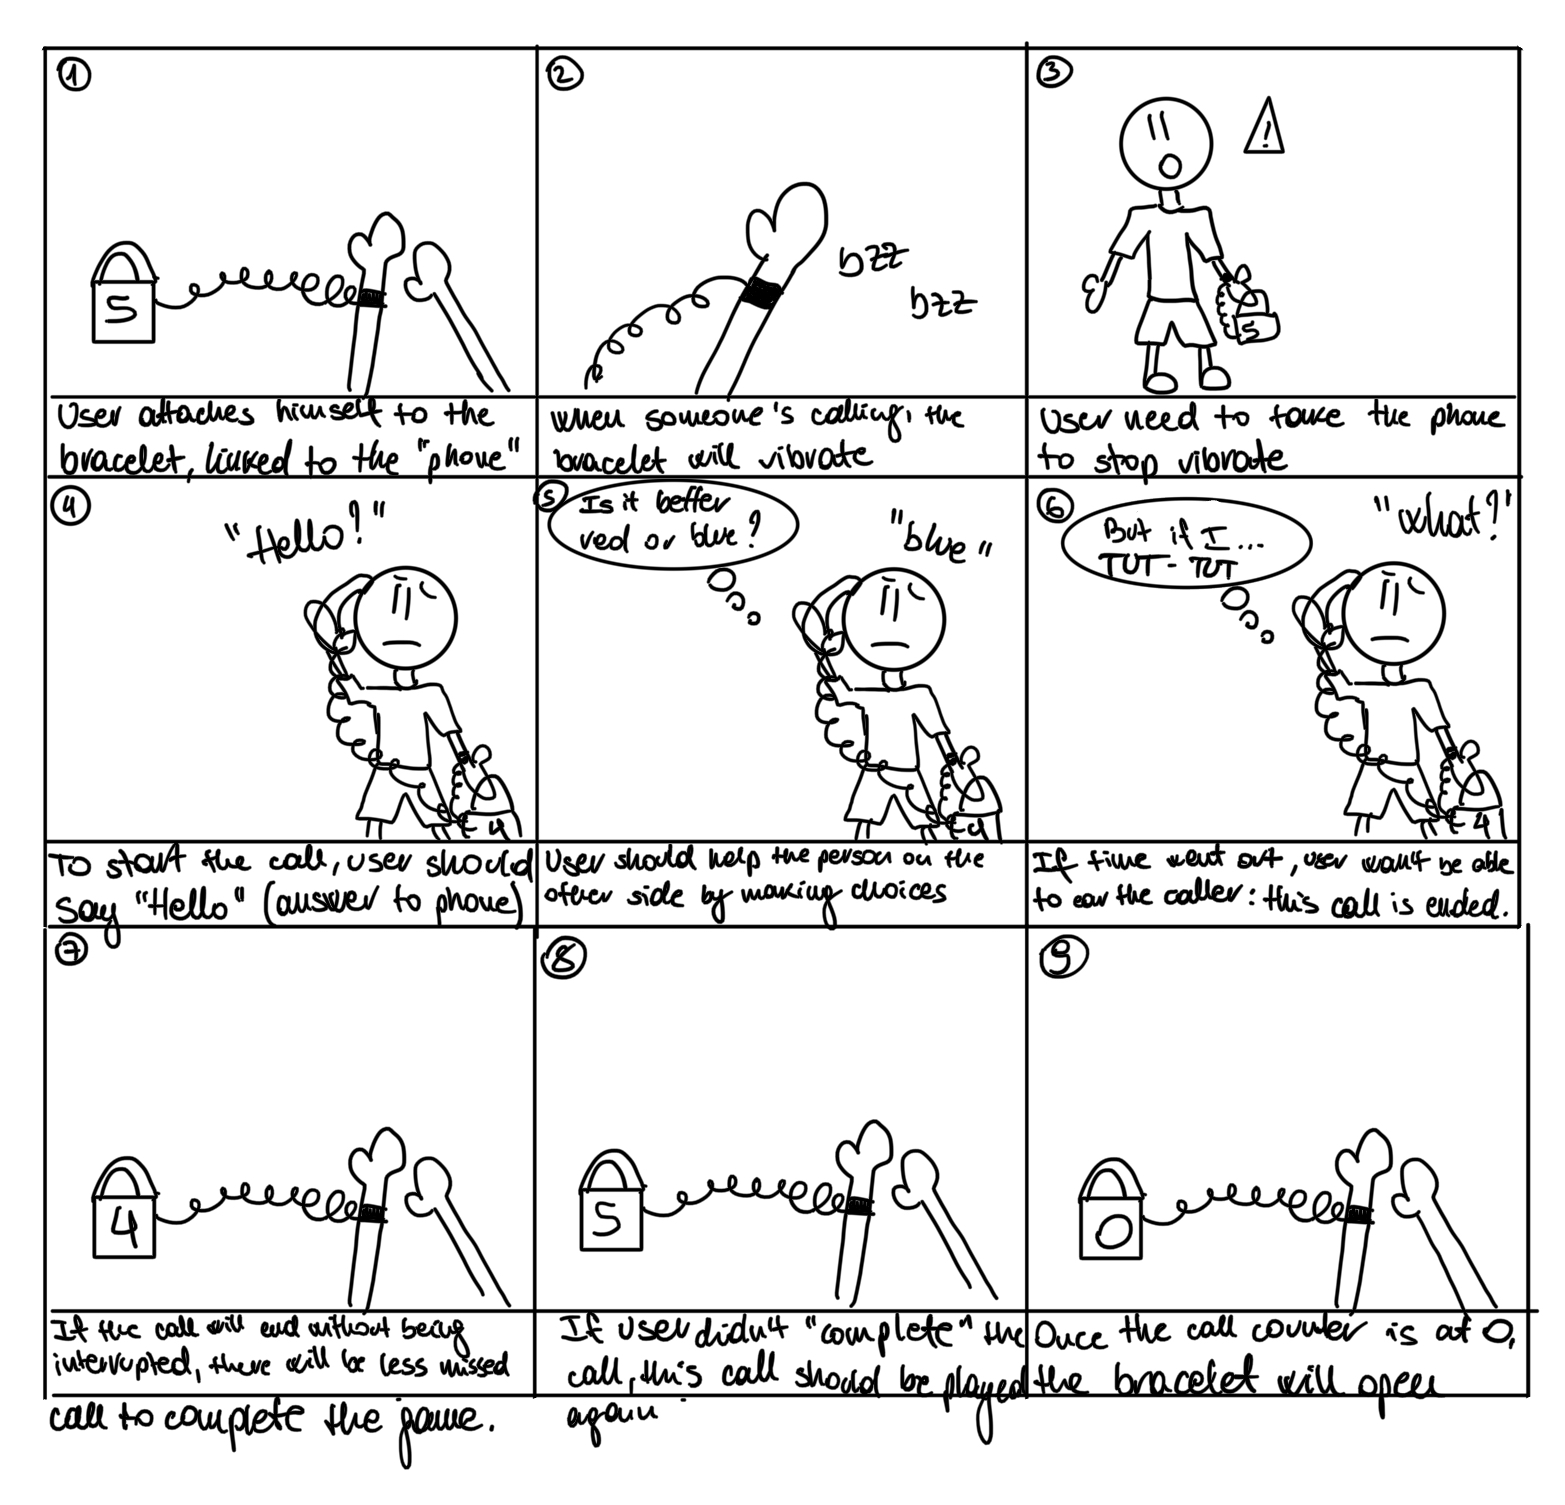 1
5
User attaches himself to the
bracelet, linked to the "phone"
2
bzz
bzz
When someone's calling, the
bracelet will vibrate
3
!
5
User need to take the phone
to stop vibrate
4
"Hello?"
4
To start the call, user should
say "Hello" (answer to phone)
5
Is it better
red or blue?
"blue"
4
User should help the person on the
other side by making choices
6
But if I...
TUT - TUT
"what?"
4
If time went out, user won't be able
to ear the caller: this call is ended.
7
4
If the call will end without being
interrupted, there will be less missed
call to complete the game.
8
5
If user didn't "complete" the
call, this call should be played
again
9
0
Once the call counter is at 0,
the bracelet will open